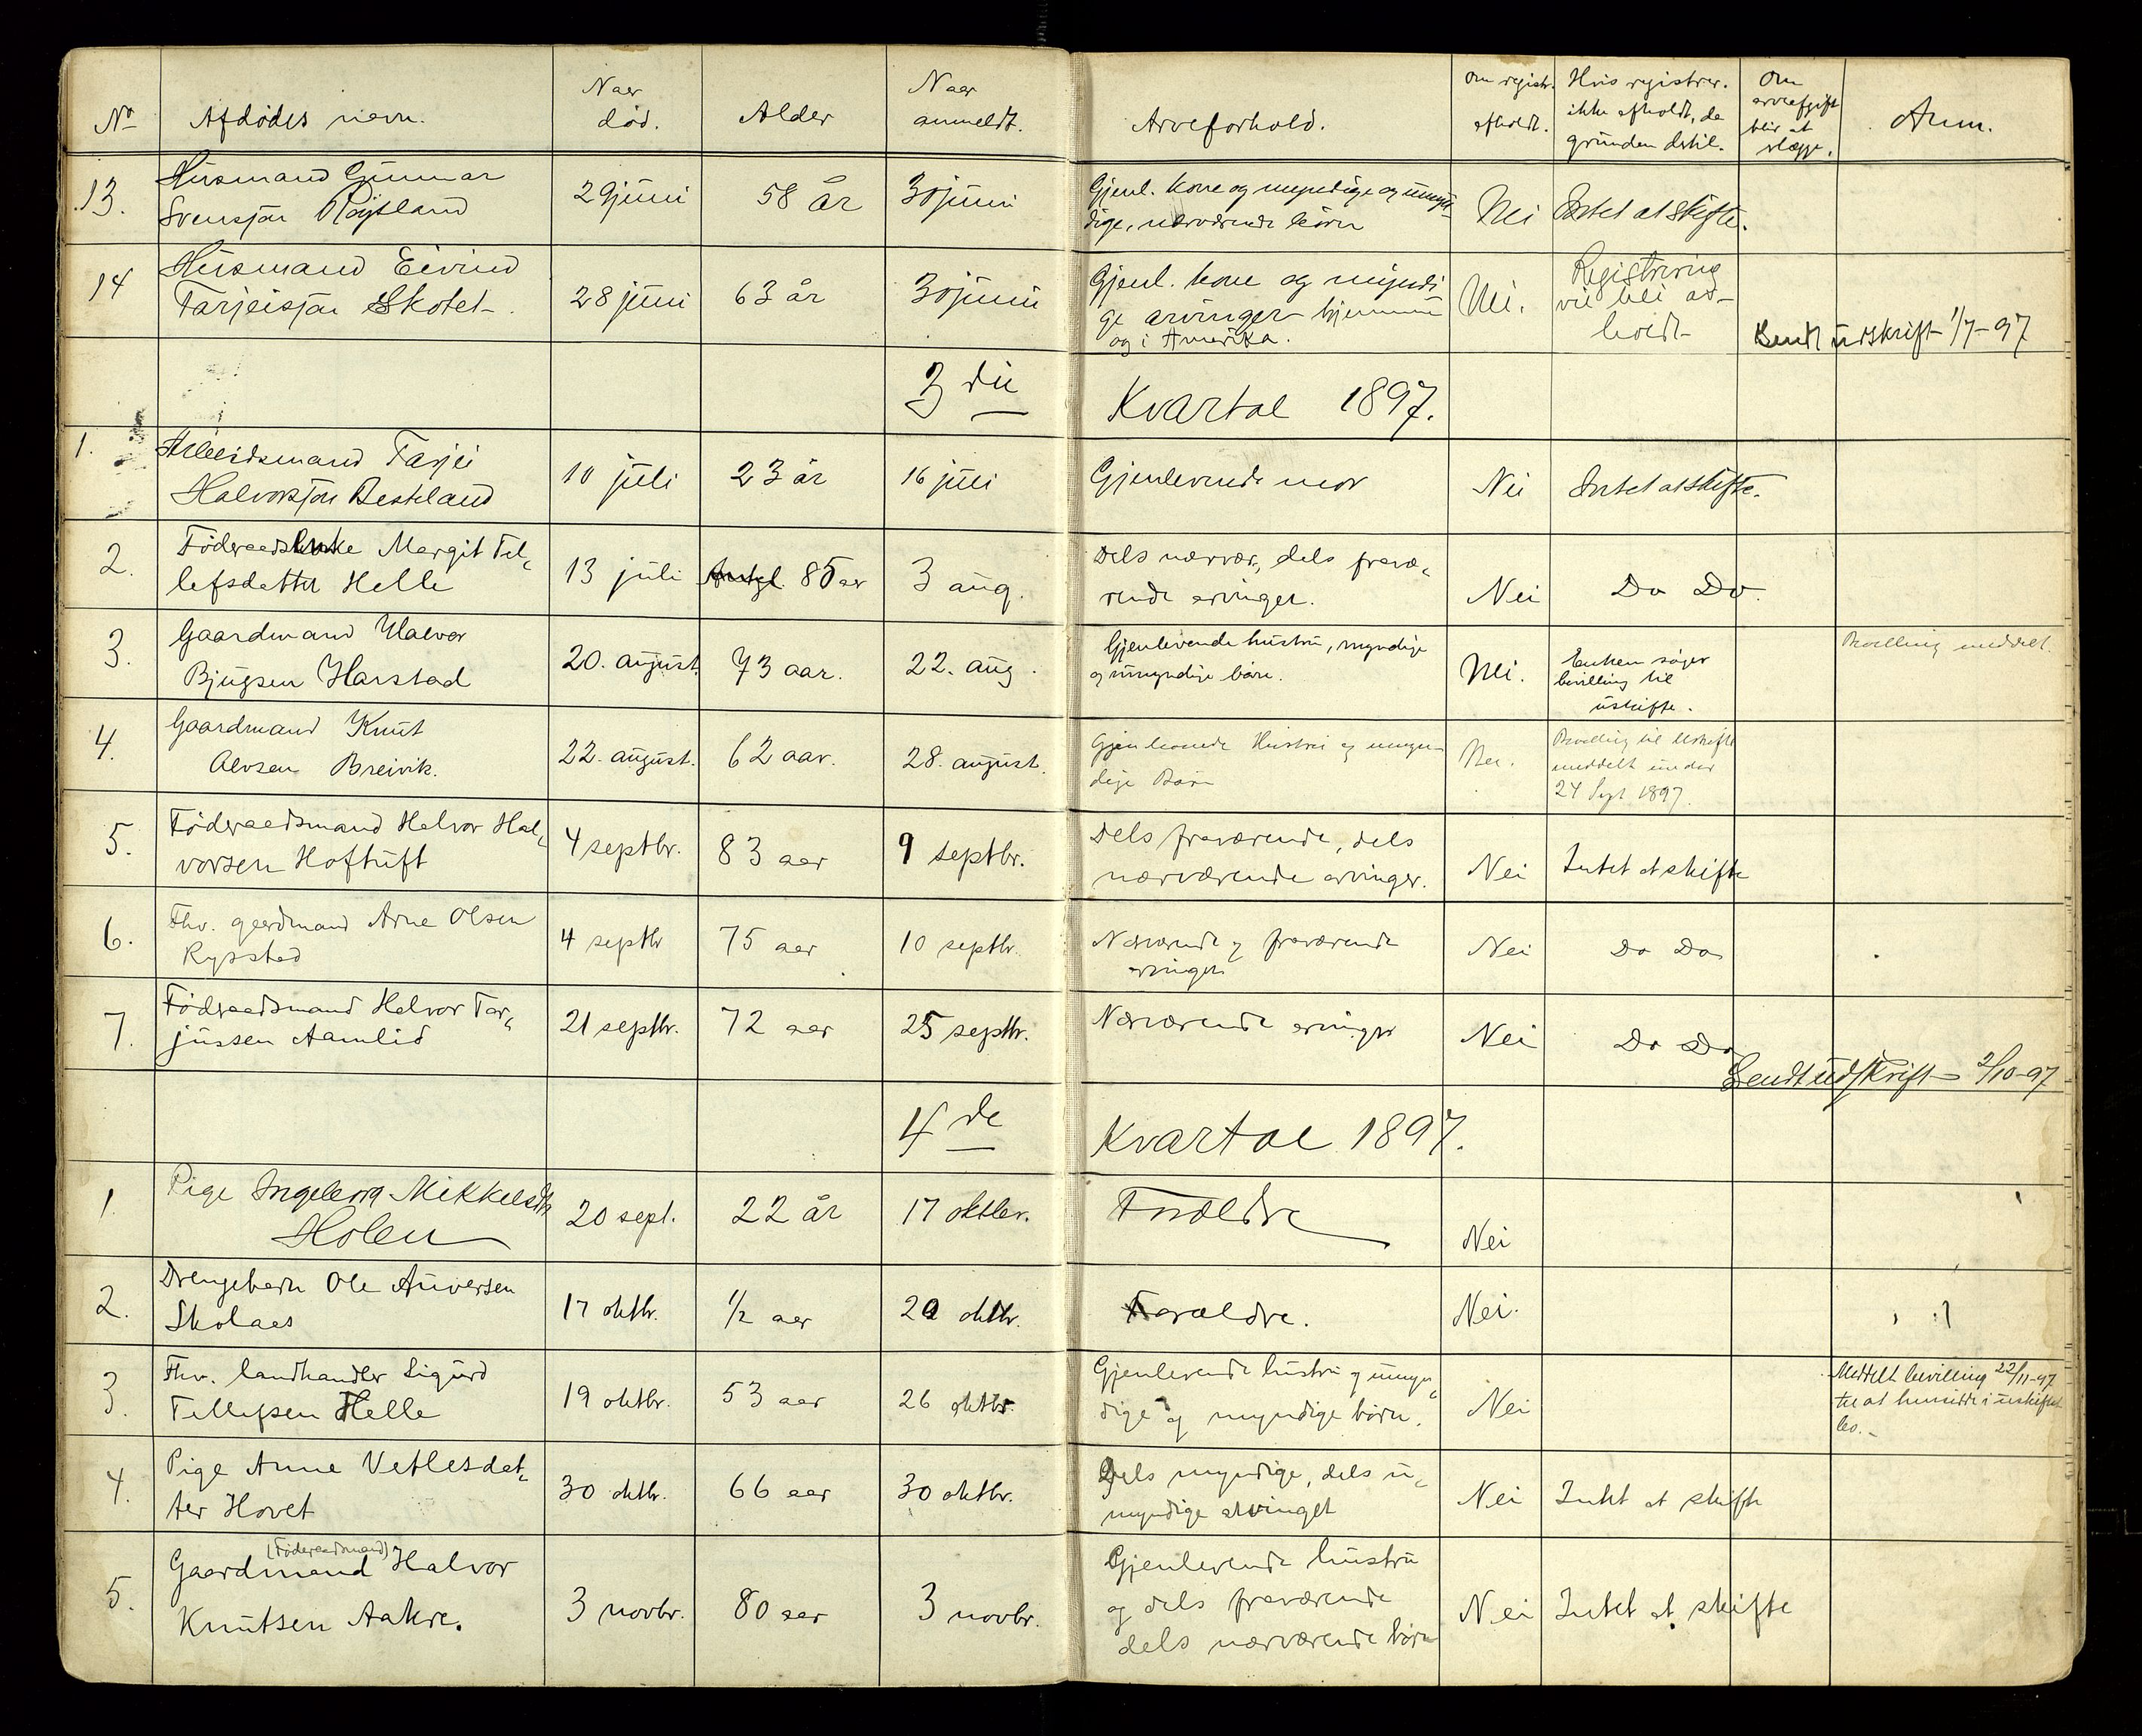 No Afdødes navn. Naar død. Alder Naar anmeldt. Arveforhold. Om registr. afholdt. Hvis registrer. ikke afholdt, da grunden dertil. Om arveafgift blir at Anm.
13. Husmand Gunnar
Svensjon Røysland
29 juni 58 år 30 juni
Gjenl. kone og myndige og umyn-
dige, nærværende børn
Nei Intet at skifte.
14 Husmand Eivind
Tarjeisjon Skotet
28 juni 63 år 30 juni
Gjenl. kone og myndi
ge arvinger hjemme
og i Amerika.
Nei.
Registrering
vil bli af-
holdt
Sendt udskrift 1/7-97
3die Kvartal 1897.
1. Arbeidsmand Tarjei
Halvorsjon Besteland
10 juli 23 år 16 juli
Gjenlevende mor
Nei Intet at skifte.
2. Föderaadsenke Margit Tel-
lefsdatter Helle
13 juli 85 aar 3 aug.
Dels nærvær., dels fravæ-
rende arvinger.
Nei Do Do
3. Gaardmand Halvor
Bjugsen Harstad
20. august 73 aar. 22. aug.
Gjenlevende hustru, myndige
og umyndige børn.
Nei.
Enken søger
bevilling til
uskifte.
Bevilling meddelt.
4. Gaardmand Knut
Alvsen Breivik.
22. august. 62 aar. 28. august.
Gjenlevende Hustru og umyn-
dige Børn
Nei.
Bevilling til Uskifte
meddelt under
24 Sept 1897.
5. Föderaadsmand Halvor Hal-
vorsen Hoftuft
4 septbr. 83 aar 9 septbr.
Dels fraværende, dels
nærværende arvinger.
Nei Intet at skifte
6. Fhv. gaardmand Arne Olsen
Rysstad
4 septbr 75 aar 10 septbr.
Nærværende og fraværende
arvinger
Nei Do Do
7. Föderaadsmand Halvor Tar-
jussen Aamlid
21 septbr. 72 aar 25 septbr.
Nærværende arvinger
Nei Do Do
Sendt udskrift 2/10-97
4de Kvartal 1897.
1. Pige Ingeborg Mikkelsdtr
Holen
20 sept. 22 år 17 oktbr.
Forældre
Nei
2. Drengebarn Ole Auversen
Skolaas
17 oktbr. 1/2 aar 20 oktbr.
Forældre.
Nei.
3. Fhv. landhandler Sigurd
Tellefsen Helle
19 oktbr. 53 aar 26 oktbr.
Gjenlevende hustru og umyn-
dige og myndige børn.
Nei
Meddelt bevilling 22/11-97
til at hensidde i uskiftet
bo.-
4. Pige Anne Vetlesdat-
ter Hovet
30 oktbr. 66 aar 30 oktbr.
Dels myndige, dels u-
myndige arvinger
Nei Intet at skifte
5. (Föderaadsmand)
Gaardmand Halvor
Knutsen Aakre.
3 novbr. 80 aar 3 novbr.
Gjenlevende hustru
og dels fraværende
dels nærværende børn
Nei Intet at skifte